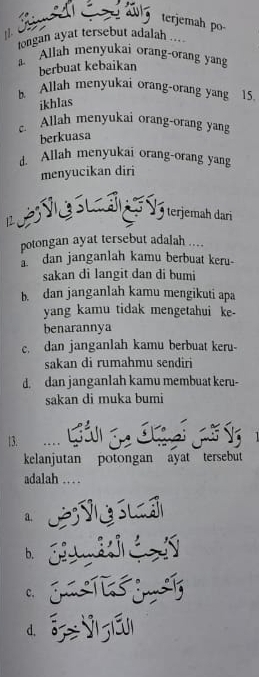 11. وَاللّٰهُ يُحِبُّ الْمُحْسِنِيْنَ terjemah po-
tongan ayat tersebut adalah ....
a. Allah menyukai orang-orang yang
berbuat kebaikan
b. Allah menyukai orang-orang yang
ikhlas
15.
c. Allah menyukai orang-orang yang
berkuasa
d. Allah menyukai orang-orang yang
menyucikan diri
12. وَلَا تَبْغِ الْفَسَادَ فِي الْأَرْضِ terjemah dari
potongan ayat tersebut adalah ....
a. dan janganlah kamu berbuat keru-
sakan di langit dan di bumi
b. dan janganlah kamu mengikuti apa
yang kamu tidak mengetahui ke-
benarannya
c. dan janganlah kamu berbuat keru-
sakan di rumahmu sendiri
d. dan janganlah kamu membuat keru-
sakan di muka bumi
13. وَلَا تَنْسَ نَصِيْبَكَ مِنَ الدُّنْيَا ....
kelanjutan potongan ayat tersebut
adalah ....
a. الْفَسَادَ فِي الْأَرْضِ
b. لَا يُحِبُّ الْمُفْسِدِيْنَ
c. وَأَحْسِنْ كَمَا أَحْسَنَ
d. الدَّارَ الْآخِرَةَ